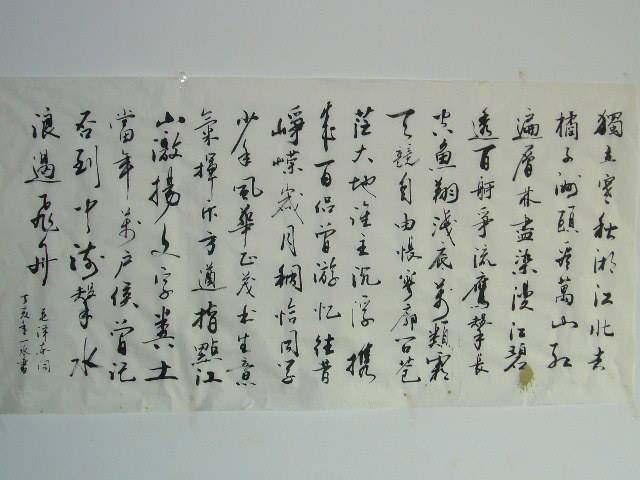 獨立寒秋湘江北去
橘子洲頭看萬山紅
遍層林盡染漫江碧
透百舸爭流鷹擊長
空魚翔淺底萬類霜
天競自由悵寥廓问蒼
茫大地誰主沉浮攜
來百侶曾游忆往昔
崢嶸歲月稠恰同學
少年風華正茂书生意
氣揮斥方遒指點江
山激揚文字糞土
當年萬户侯曾记
否到中流擊水
浪遏飛舟
毛泽东词
丁亥年一書